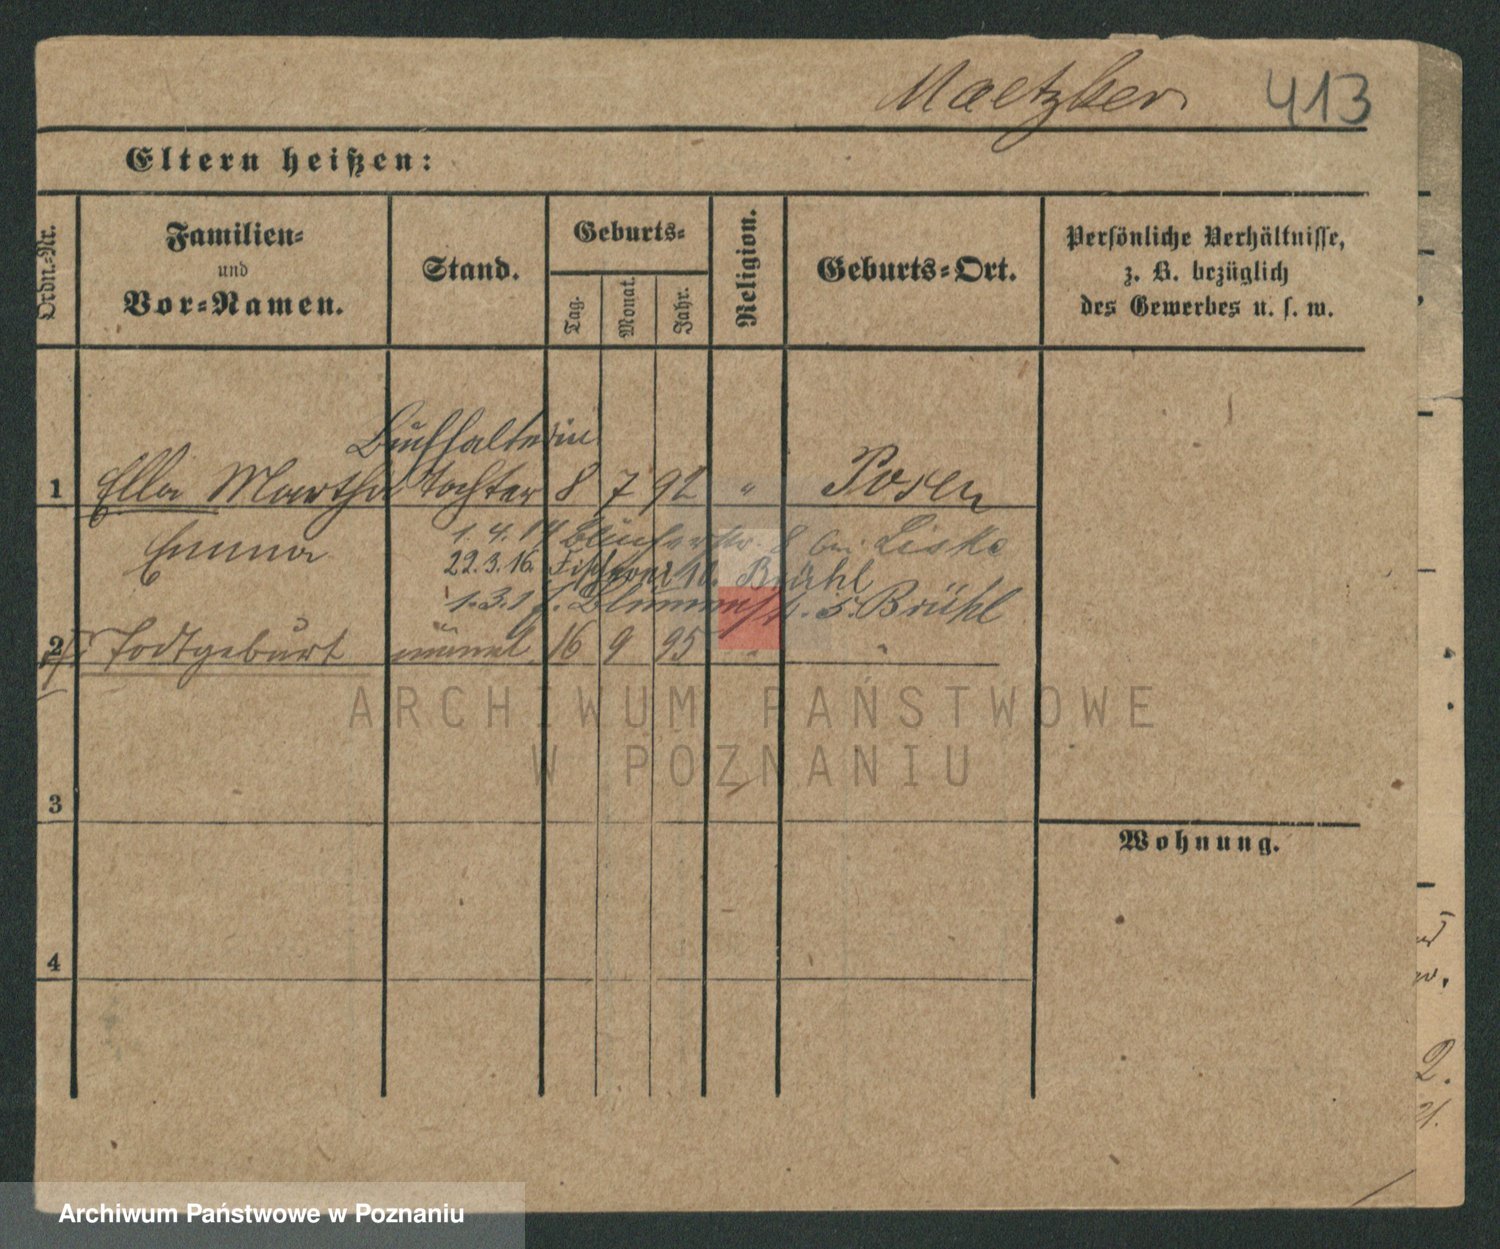 Maetzker 413
Eltern heißen:
Ordn.-Nr.
Familien-
und
Vor-Namen.
Stand.
Geburts-
Tag.
Monat.
Jahr.
Religion.
Geburts-Ort.
Persönliche Verhältnisse,
z. B. bezüglich
des Gewerbes u. s. w.
Buchhalterin
1 Ella Martha Tochter 8 7 92 " Posen
Emma
1. 4. 14 Blücherstr. 8 bei Liske
22.3.16. 10. Brühl
1.3.1 Blumenstr. 5. Brühl
2 Todtgeburt männl. 16 9 95 " "
ARCHIWUM PAŃSTWOWE
W POZNANIU
3
Wohnung.
4
2.
Archiwum Państwowe w Poznaniu